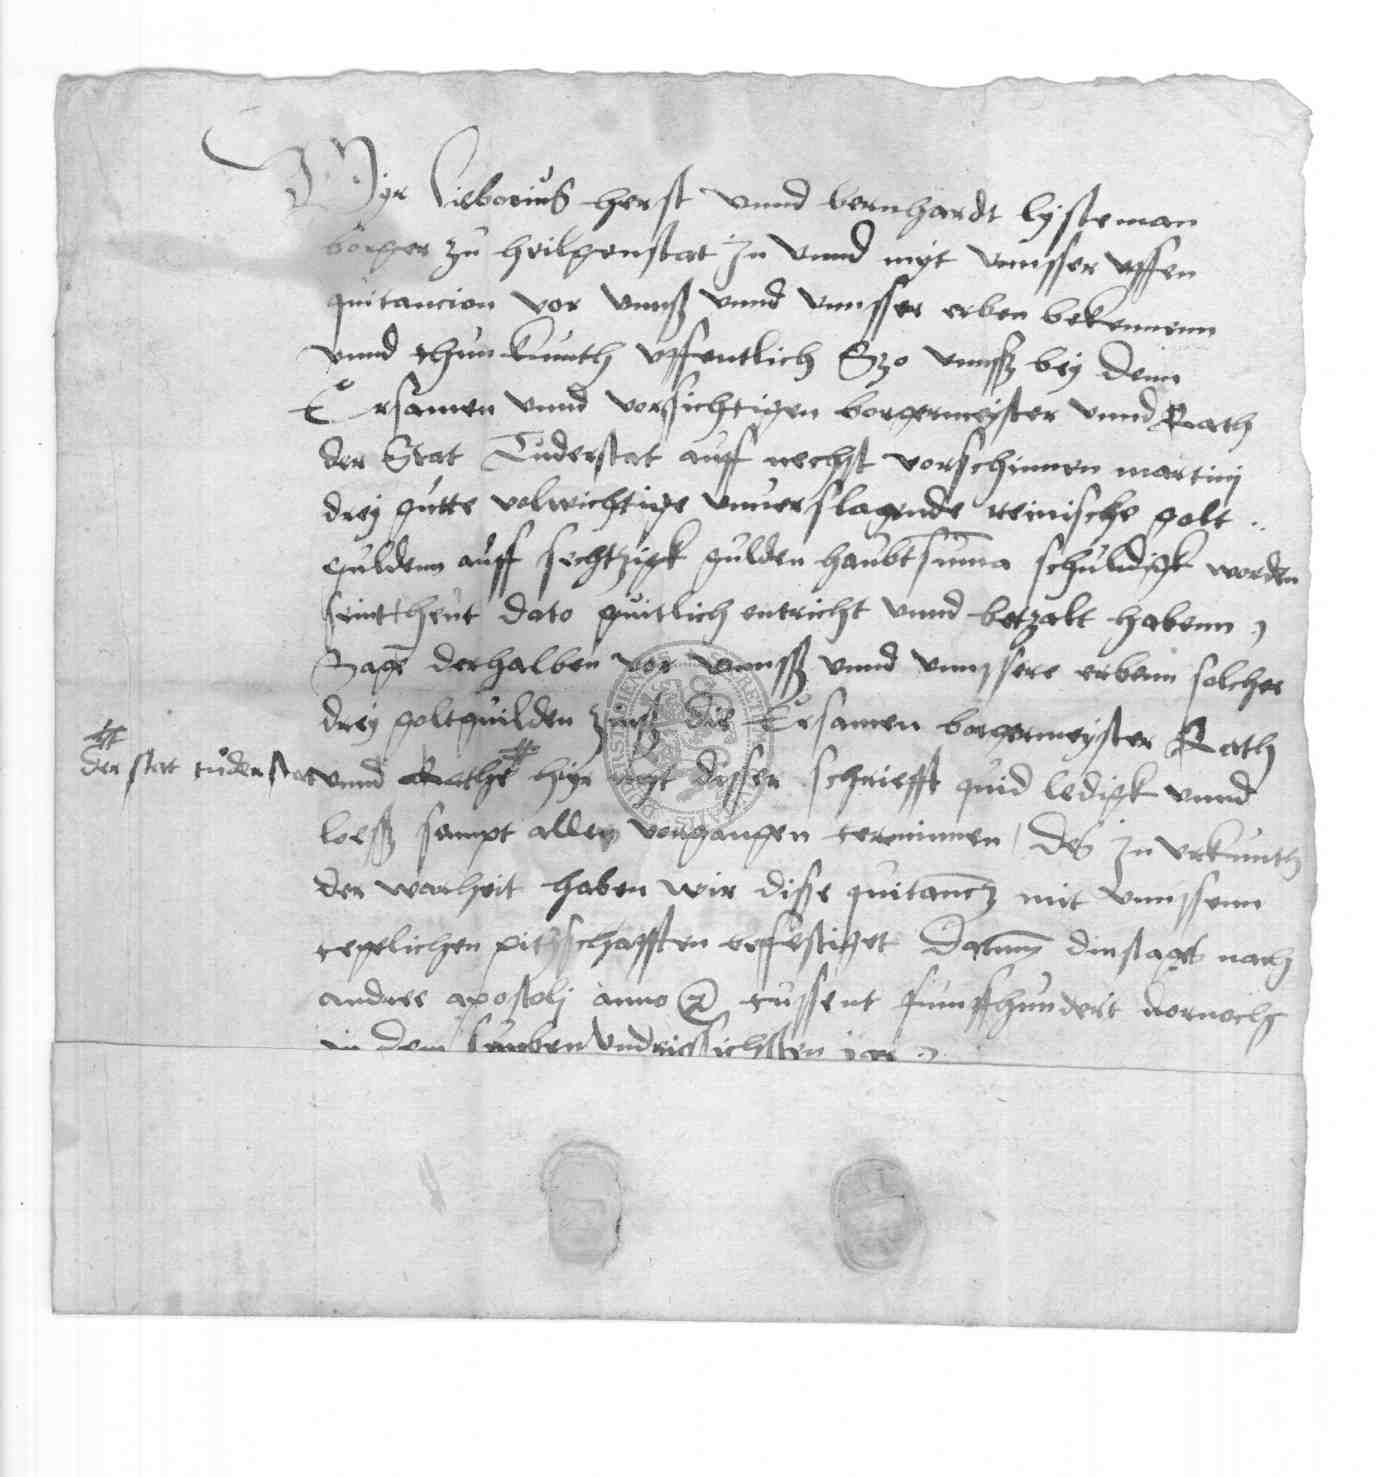 Wyr Lieborius herst unnd bernhardt lysteman
borger zu heilgenstat In unnd myt unnsser uffen
quitancion vor unnß unnd unnsser erben bekennenn
unnd thun kunth uffentlich Szo unnß bey denn
Ersamen unnd vorsichtigen borgermeyster unnd Rath
der Stat Tuderstat auff nechst vorschinnen martinj
drey gutte volwichtige unverslagende reinische golt ..
guldenn auff sechtzigk gulden haubtsuma schuldigk worden
seint heut dato guitlich entricht unnd betzalt habenn
Sage derhalben vor unnsß unnd unnssere erbenn solcher
drey goltguilden zinß die Ersamen borgermeyster Rath
der stat tuderstat
unnd hyr myt disser schriefft quid ledigk unnd
loeß sampt allen vorgangen terminnen / Des zu urkunth
der warheit haben wir disse quitantz mit unnssenn
pitzschafften erfestiget Datum dinstags nach
andree apostolj anno tussent funffhundert dornoch
in dem undrissichsten jar